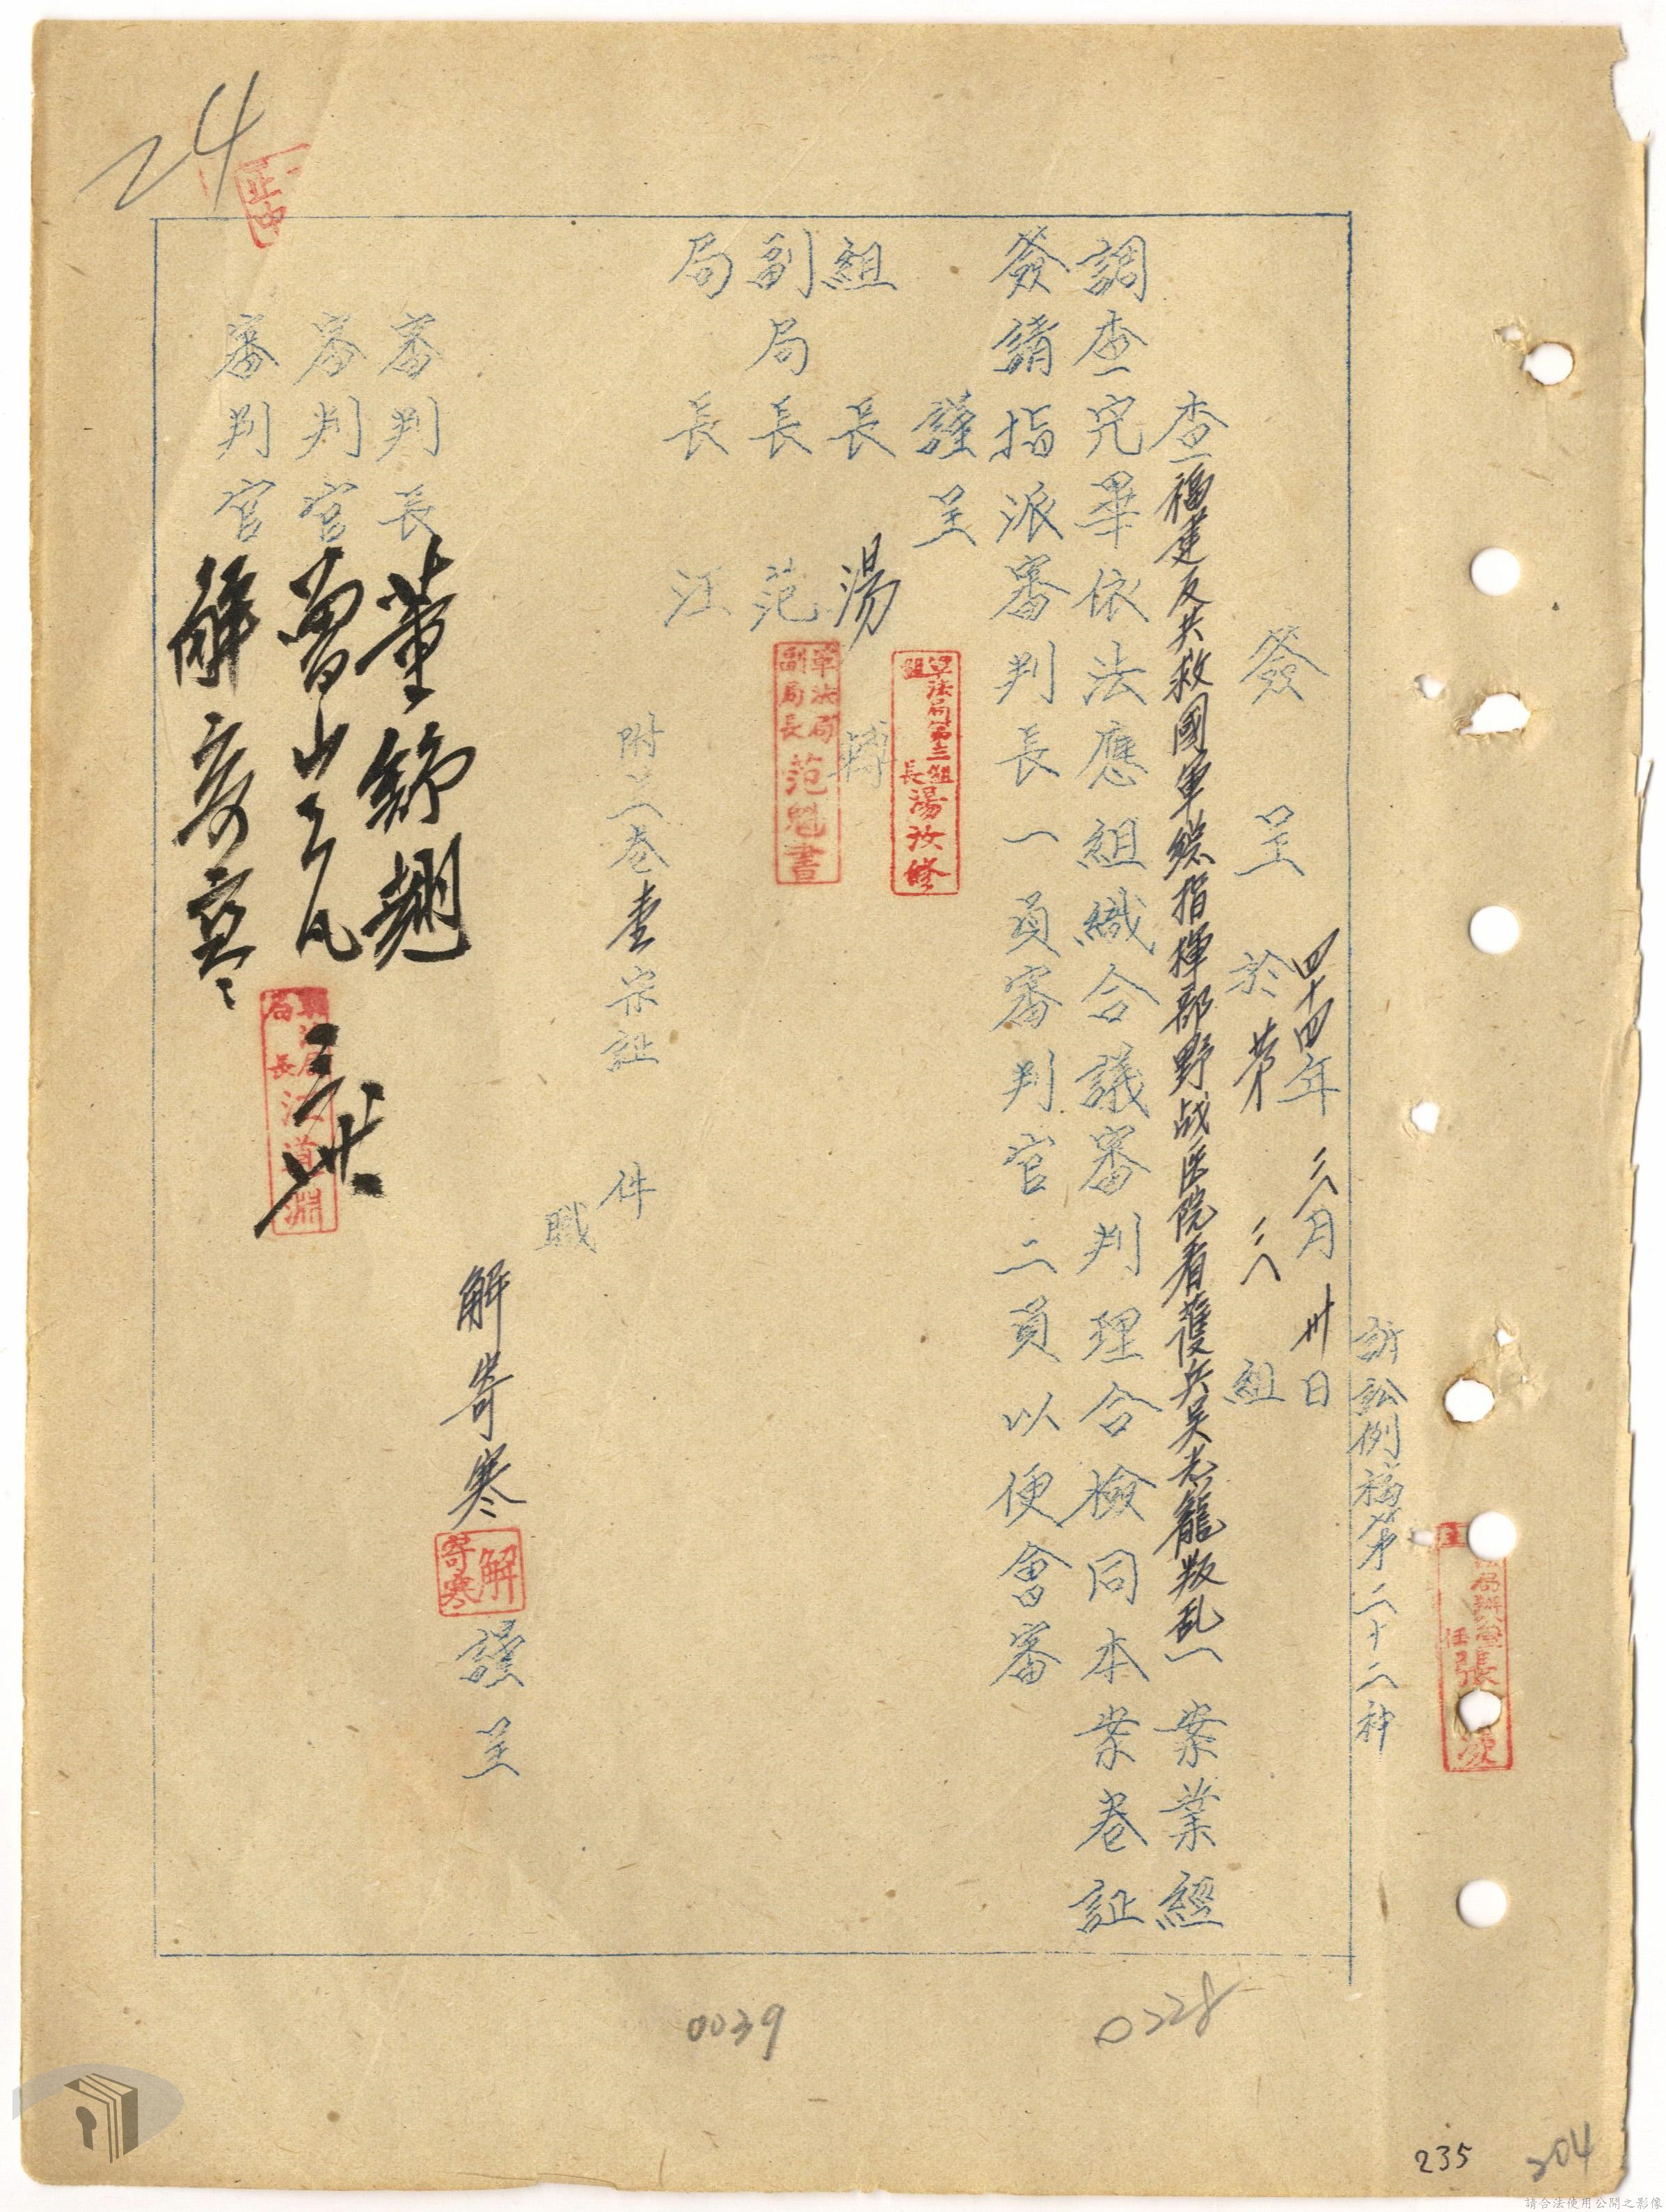 訴訟例稿第二十二种
四十四年三月卅日
簽呈
於第三組
查福建反共救國軍總指揮部野战医院看護兵吴志龍叛乱一案業經
調查完畢依法應組織合議審判理合檢同本案卷証
簽請指派審判長一員審判官二員以便會審
謹呈
組長湯 轉
軍法局第三組組長湯汝修
副局長范
軍法局副局長范魁書
局長江
附卷壹宗証件
職解寄寒謹呈
解寄寒
審判長董錦翹
審判官
審判官解寄寒
三卅
軍法局局長江道淵
24
0039
0328
235
304
請合法使用公開之影像